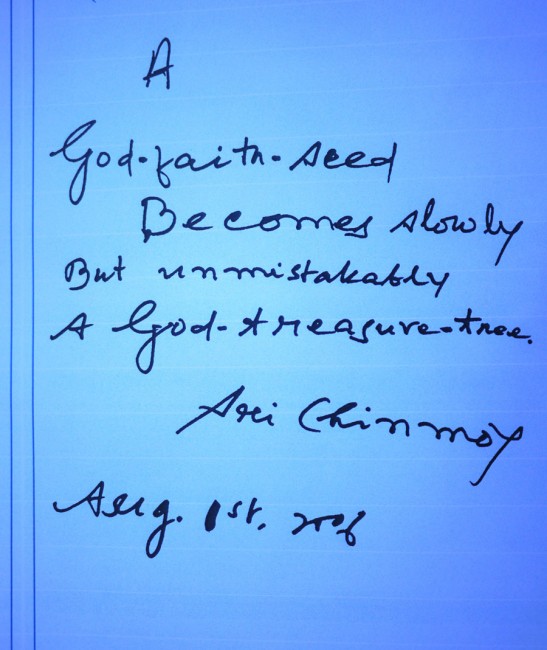 A
God-faith-seed
Becomes slowly
But unmistakably
A God-treasure-tree.
Sri Chinmoy
Aug. 1st. 2006